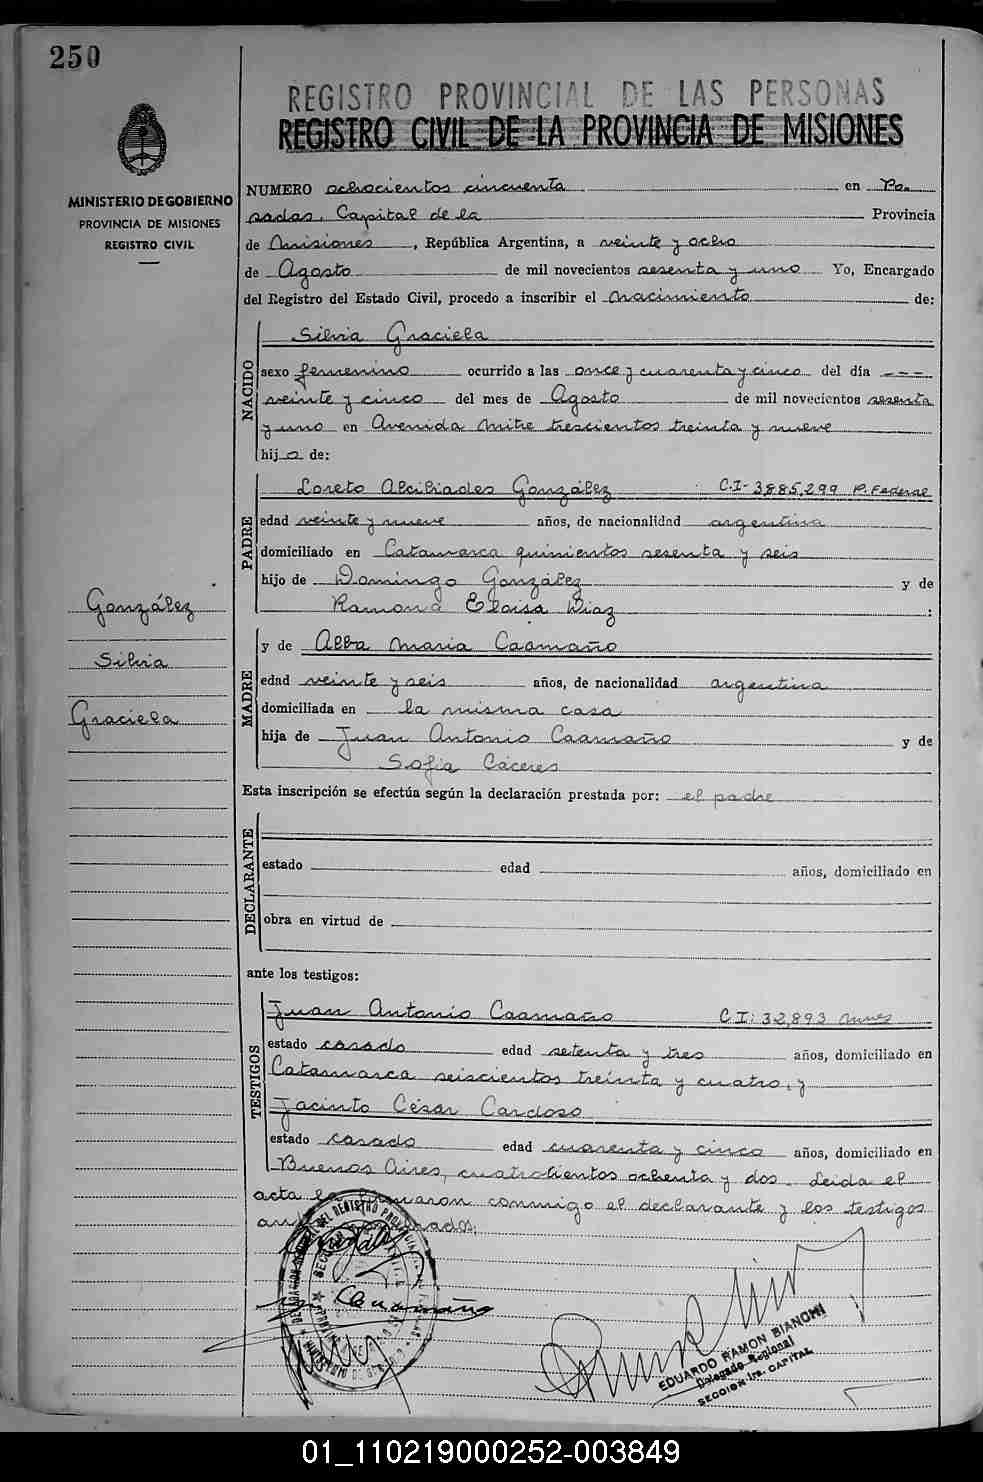 250
REGISTRO PROVINCIAL DE LAS PERSONAS
REGISTRO CIVIL DE LA PROVINCIA DE MISIONES
MINISTERIO DE GOBIERNO
PROVINCIA DE MISIONES
REGISTRO CIVIL
NUMERO ochocientos cincuenta en Po-
sadas, Capital de la Provincia
de Misiones, República Argentina, a veinte y ocho
de Agosto de mil novecientos sesenta y uno Yo, Encargado
del Registro del Estado Civil, procedo a inscribir el nacimiento de:
NACIDO
Silvia Graciela
sexo femenino ocurrido a las once y cuarenta y cinco del día ---
veinte y cinco del mes de Agosto de mil novecientos sesenta
y uno en Avenida Mitre trescientos treinta y nueve
hija de:
PADRE
Loreto Alcibiades González C.I- 3.885.299 P. Federal
edad veinte y nueve años, de nacionalidad argentina
domiciliado en Catamarca quinientos sesenta y seis
hijo de Domingo González y de
Ramona Eloisa Diaz :
González
Silvia
Graciela
MADRE
y de Alba Maria Caamaño
edad veinte y seis años, de nacionalidad argentina
domiciliada en la misma casa
hija de Juan Antonio Caamaño y de
Sofia Cáceres
Esta inscripción se efectúa según la declaración prestada por: el padre
DECLARANTE
estado edad años, domiciliado en
obra en virtud de
ante los testigos:
TESTIGOS
Juan Antonio Caamaño C.I: 32,893 Mnes
estado casado edad setenta y tres años, domiciliado en
Catamarca seiscientos treinta y cuatro, y
Jacinto César Cardoso
estado casado edad cuarenta y cinco años, domiciliado en
Buenos Aires, cuatrocientos ochenta y dos. Leida el
acta la firmaron conmigo el declarante y los testigos
Caamaño
EDUARDO RAMON BIANCHI
Delegado Regional
SECCION 1ra. CAPITAL
01_110219000252-003849